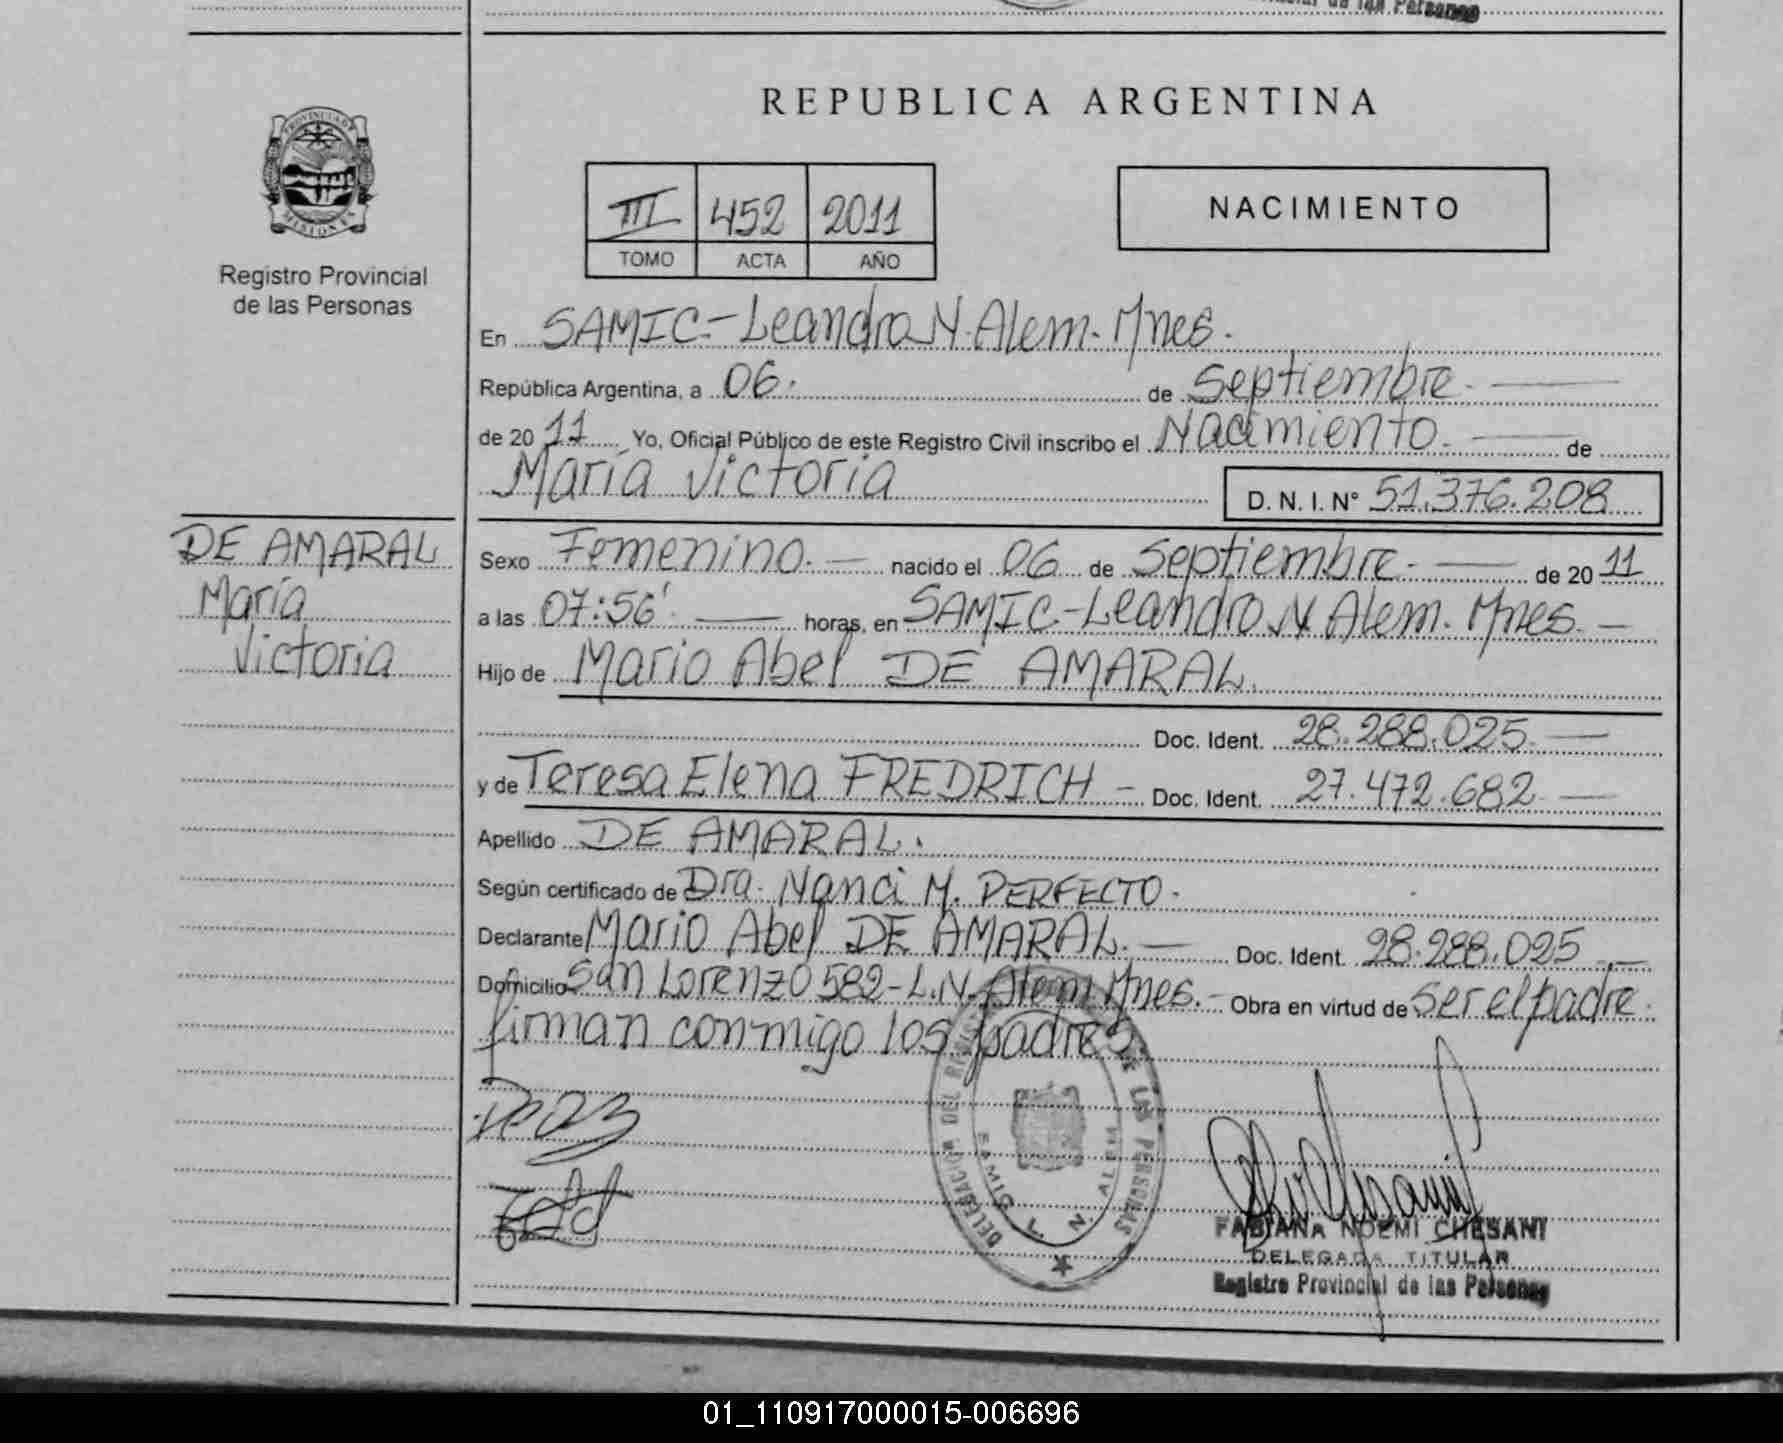 de las Personas
REPUBLICA ARGENTINA
PROVINCIA DE
MISIONES
Registro Provincial
de las Personas
III 452 2011
TOMO ACTA AÑO
NACIMIENTO
En SAMIC-Leandro N. Alem. Mnes.
República Argentina, a 06. de Septiembre.
de 20 11 Yo, Oficial Público de este Registro Civil inscribo el Nacimiento. de
María Victoria
D. N. I. N° 51.376.208
DE AMARAL
María
Victoria
Sexo Femenino. nacido el 06 de Septiembre. de 20 11
a las 07:56' horas, en SAMIC-Leandro N Alem. Mnes.
Hijo de Mario Abel DE AMARAL.
Doc. Ident. 28.288.025.
y de Teresa Elena FREDRICH - Doc. Ident. 27.472.682
Apellido DE AMARAL.
Según certificado de Dra. Nanci M. PERFECTO.
Declarante Mario Abel DE AMARAL. Doc. Ident. 28.288.025
Domicilio San Lorenzo 582-L.N. Alem Mnes. Obra en virtud de ser el padre.
firman conmigo los padres.
DELEGACION DEL REGISTRO DE LAS PERSONAS
SAMIC L. N. ALEM
FABIANA NOEMI CHESANI
DELEGADA TITULAR
Registro Provincial de las Personas
01_110917000015-006696